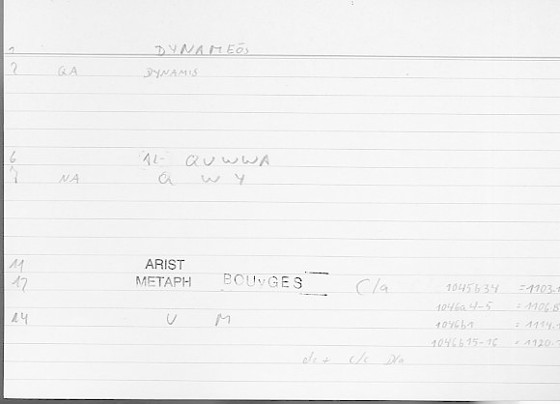 1 DYNAMEŌS
2 QA DYNAMIS
6 AL- QUWWA
7 NA Q W Y
11 ARIST
12 METAPH BOUYGES C/a 1045b34 =1103.1
1046a4-5 =1106.8
1046b1 =1114.1
24 V M
1046b15-16 =1120.